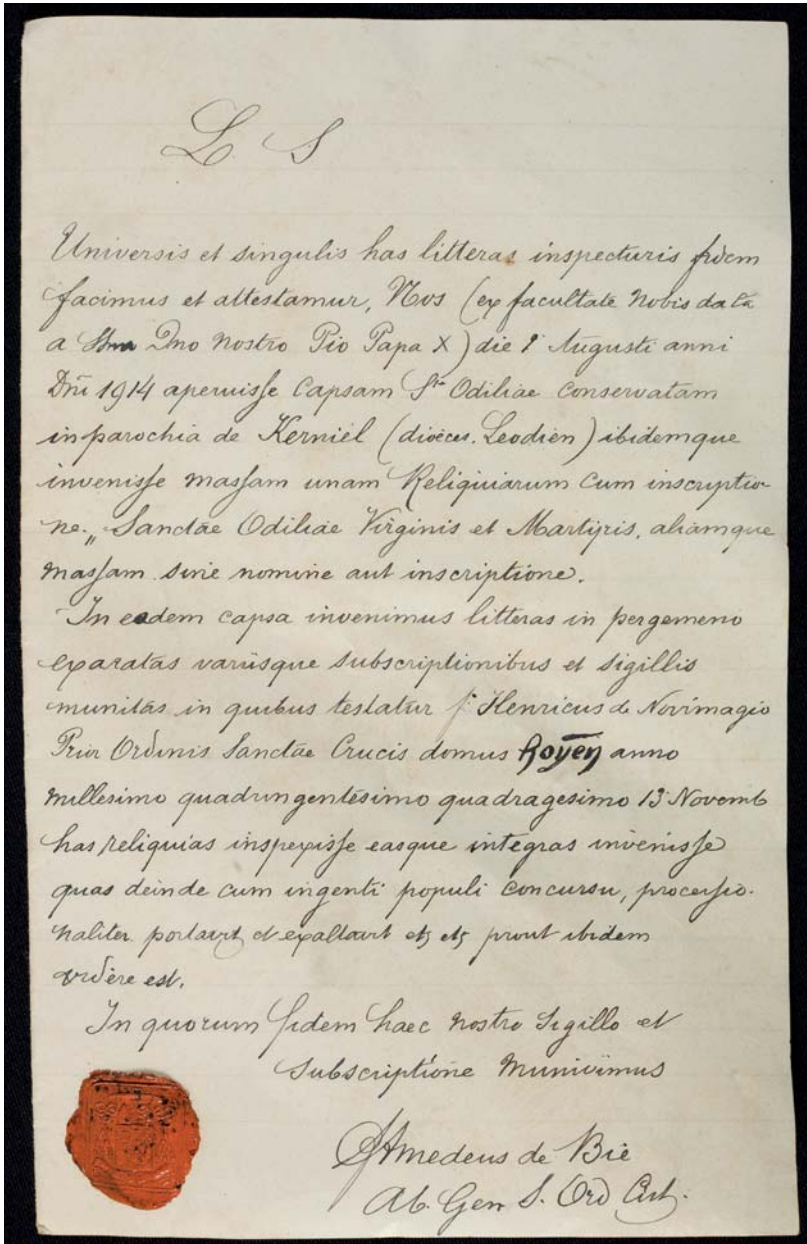 L S
Universis et singulis has litteras inspecturis fidem
facimus et attestamur, Nos (ex facultate Nobis data
a Dno Nostro Pio Papa X) die 1 Augusti anni
Dni 1914 aperuisse Capsam Stae Odiliae Conservatam
in parochia de Kerniel (dioeces. Leodien) ibidemque
invenisse massam unam Reliquiarum cum inscriptio-
ne „Sanctae Odiliae Virginis et Martyris, aliamque
massam sine nomine aut inscriptione.
In eadem capsa invenimus litteras in pergameno
exaratas variisque subscriptionibus et sigillis
munitas in quibus testatur f. Henricus de Novimagio
Prior Ordinis Sanctae Crucis domus anno
millesimo quadringentesimo quadragesimo 13 Novemb
has reliquias inspexisse easque integras invenisse
quas deinde cum ingenti populi concursu, processio-
naliter portavit et exaltavit etc etc prout ibidem
videre est.
In quorum fidem haec nostro Sigillo et
subscriptione munivimus
Amedeus de Bie
Ab. Gen S. Ord Cist.